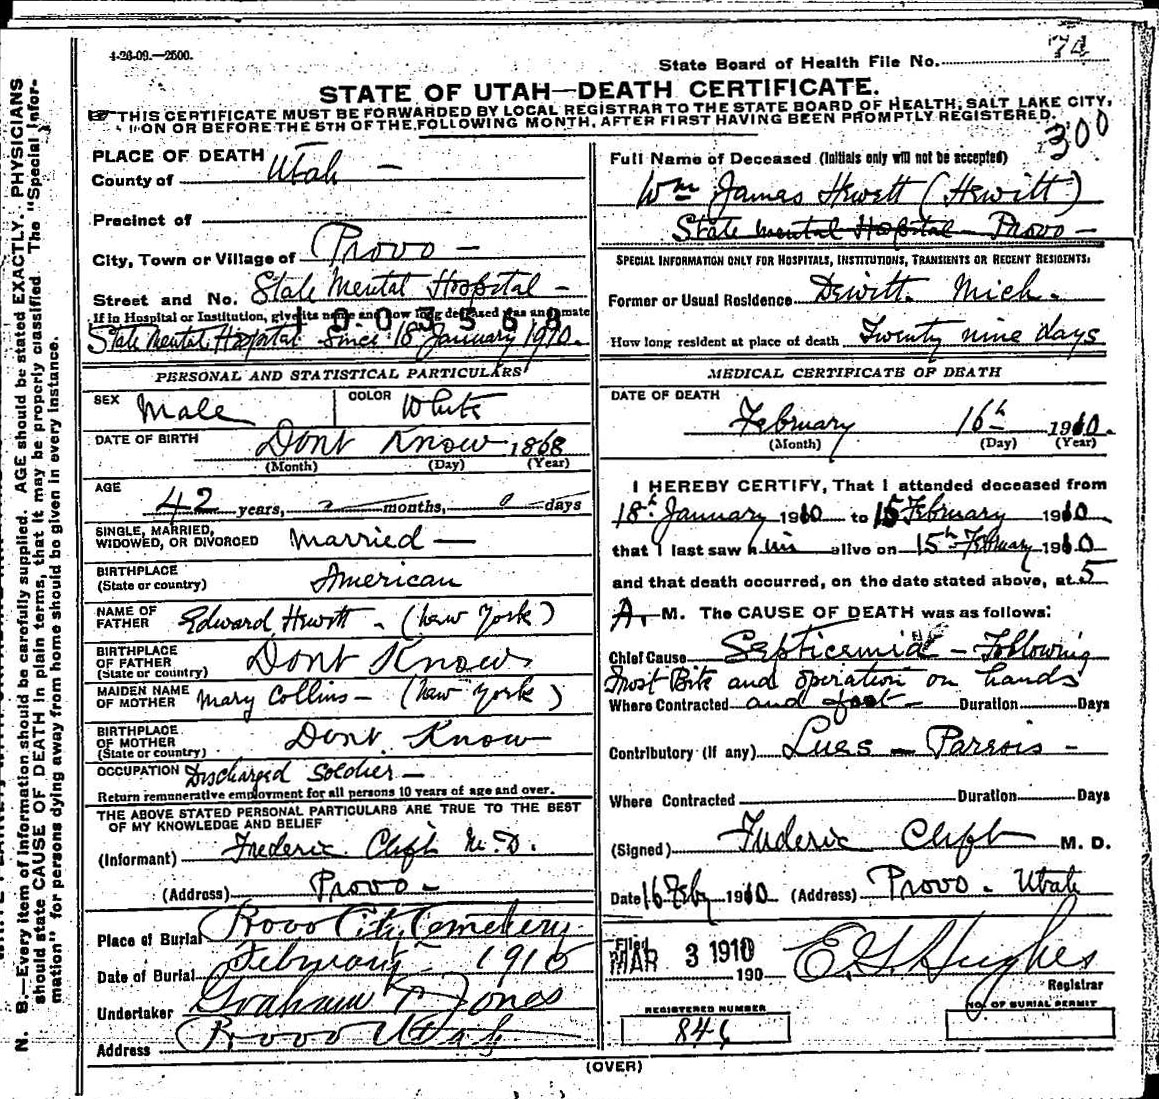 4-26-09.—2500.
74
State Board of Health File No.
STATE OF UTAH—DEATH CERTIFICATE.
THIS CERTIFICATE MUST BE FORWARDED BY LOCAL REGISTRAR TO THE STATE BOARD OF HEALTH, SALT LAKE CITY,
ON OR BEFORE THE 5TH OF THE FOLLOWING MONTH, AFTER FIRST HAVING BEEN PROMPTLY REGISTERED.
300
PLACE OF DEATH
County of Utah —
Precinct of
City, Town or Village of Provo —
Street and No. State Mental Hospital —
If in Hospital or Institution, give its name and how long deceased was an inmate
1003568
State Mental Hospital since 18 January 1910.
PERSONAL AND STATISTICAL PARTICULARS
SEX Male COLOR White
DATE OF BIRTH Dont Know 1868
(Month) (Day) (Year)
AGE
42 years, months, days
SINGLE, MARRIED,
WIDOWED, OR DIVORCED Married —
BIRTHPLACE
(State or country) American
NAME OF
FATHER Edward Hewitt - (New York)
BIRTHPLACE
OF FATHER
(State or country) Dont Know
MAIDEN NAME
OF MOTHER Mary Collins — (New York)
BIRTHPLACE
OF MOTHER
(State or country) Dont Know
OCCUPATION Discharged Soldier —
Return remunerative employment for all persons 10 years of age and over.
THE ABOVE STATED PERSONAL PARTICULARS ARE TRUE TO THE BEST
OF MY KNOWLEDGE AND BELIEF
(Informant) Frederic Clift M.D.
(Address) Provo —
Place of Burial Provo City Cemetery
Date of Burial February 1910
Undertaker Graham & Jones
Address Provo Utah
Full Name of Deceased (Initials only will not be accepted)
Wm James Hewett (Hewitt)
State Mental Hospital Provo —
SPECIAL INFORMATION ONLY FOR HOSPITALS, INSTITUTIONS, TRANSIENTS OR RECENT RESIDENTS:
Former or Usual Residence Dewitt. Mich.
How long resident at place of death Twenty nine days
MEDICAL CERTIFICATE OF DEATH
DATE OF DEATH
February 16th 1910.
(Month) (Day) (Year)
I HEREBY CERTIFY, That I attended deceased from
18th January 1910 to 15 February 1910
that I last saw him alive on 15th February 1910
and that death occurred, on the date stated above, at 5
A. M. The CAUSE OF DEATH was as follows:
Chief Cause Septicemia — Following
Frost Bite and operation on hands
Where Contracted and foot — Duration Days
Contributory (If any) Lues — Paresis —
Where Contracted Duration Days
(Signed) Frederic Clift M. D.
Date 16 Feby 1910 (Address) Provo. Utah
Filed
MAR 3 1910 190 E. G. Hughes
Registrar
REGISTERED NUMBER
846
NO. OF BURIAL PERMIT
(OVER)
N. B.—Every item of information should be carefully supplied. AGE should be stated EXACTLY. PHYSICIANS
should state CAUSE OF DEATH in plain terms, that it may be properly classified. The "Special Infor-
mation" for persons dying away from home should be given in every instance.